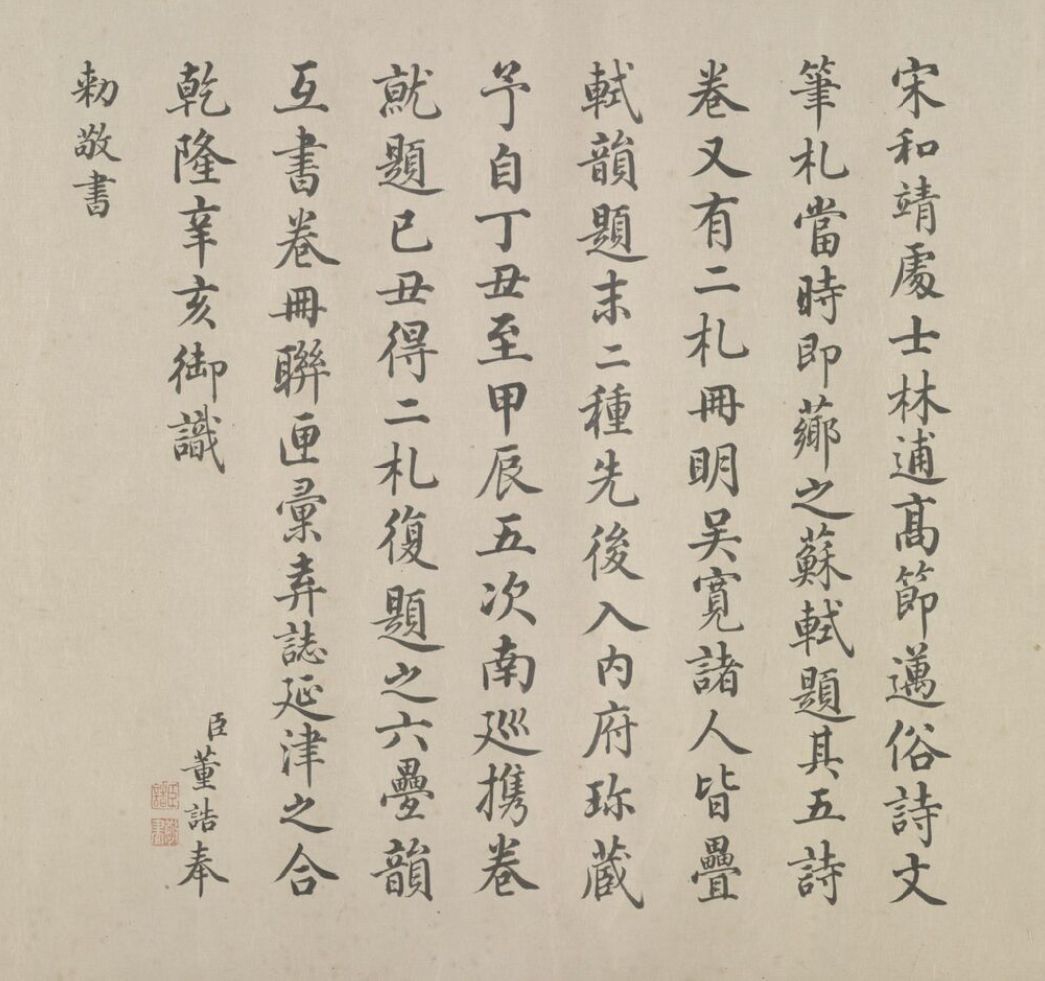 宋和靖處士林逋髙節邁俗詩文
筆札當時即薌之蘇軾題其五詩
卷又有二札冊明吴寬諸人皆疊
軾韻題末二種先後入内府珎蔵
予自丁丑至甲辰五次南廵攜卷
就題已丑得二札復題之六疊韻
互書卷冊聯匣彙弆誌延津之合
乾隆辛亥御識
臣董誥奉
勅敬書